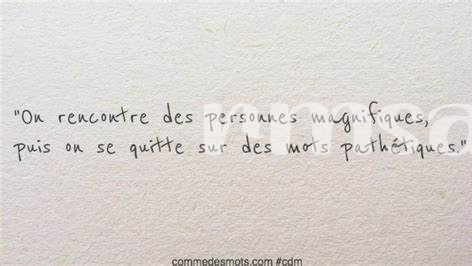 "On rencontre des personnes magnifiques,
puis on se quitte sur des mots pathétiques."
rmsa
commedesmots.com #cdm